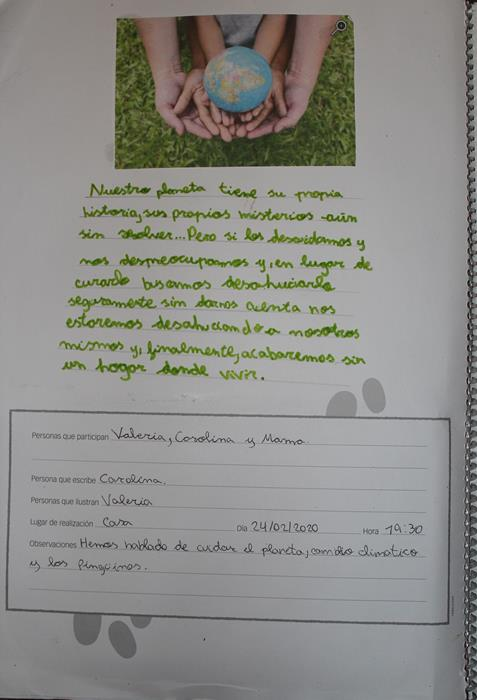 Nuestro planeta tiene su propia
historia, sus propios misterios aún
sin resolver... Pero si los descuidamos y
nos despreocupamos y, en lugar de
curarlo buscamos desahuciarlo
seguramente sin darnos cuenta nos
estaremos desahuciando a nosotros
mismos y, finalmente, acabaremos sin
un hogar donde vivir.
Personas que participan Valeria, Carolina y Mama.
Persona que escribe Carolina.
Personas que ilustran Valeria
Lugar de realización Casa Día 24/02/2020 Hora 19:30
Observaciones Hemos hablado de cuidar el planeta, cambio climatico
y los Pingüinos.